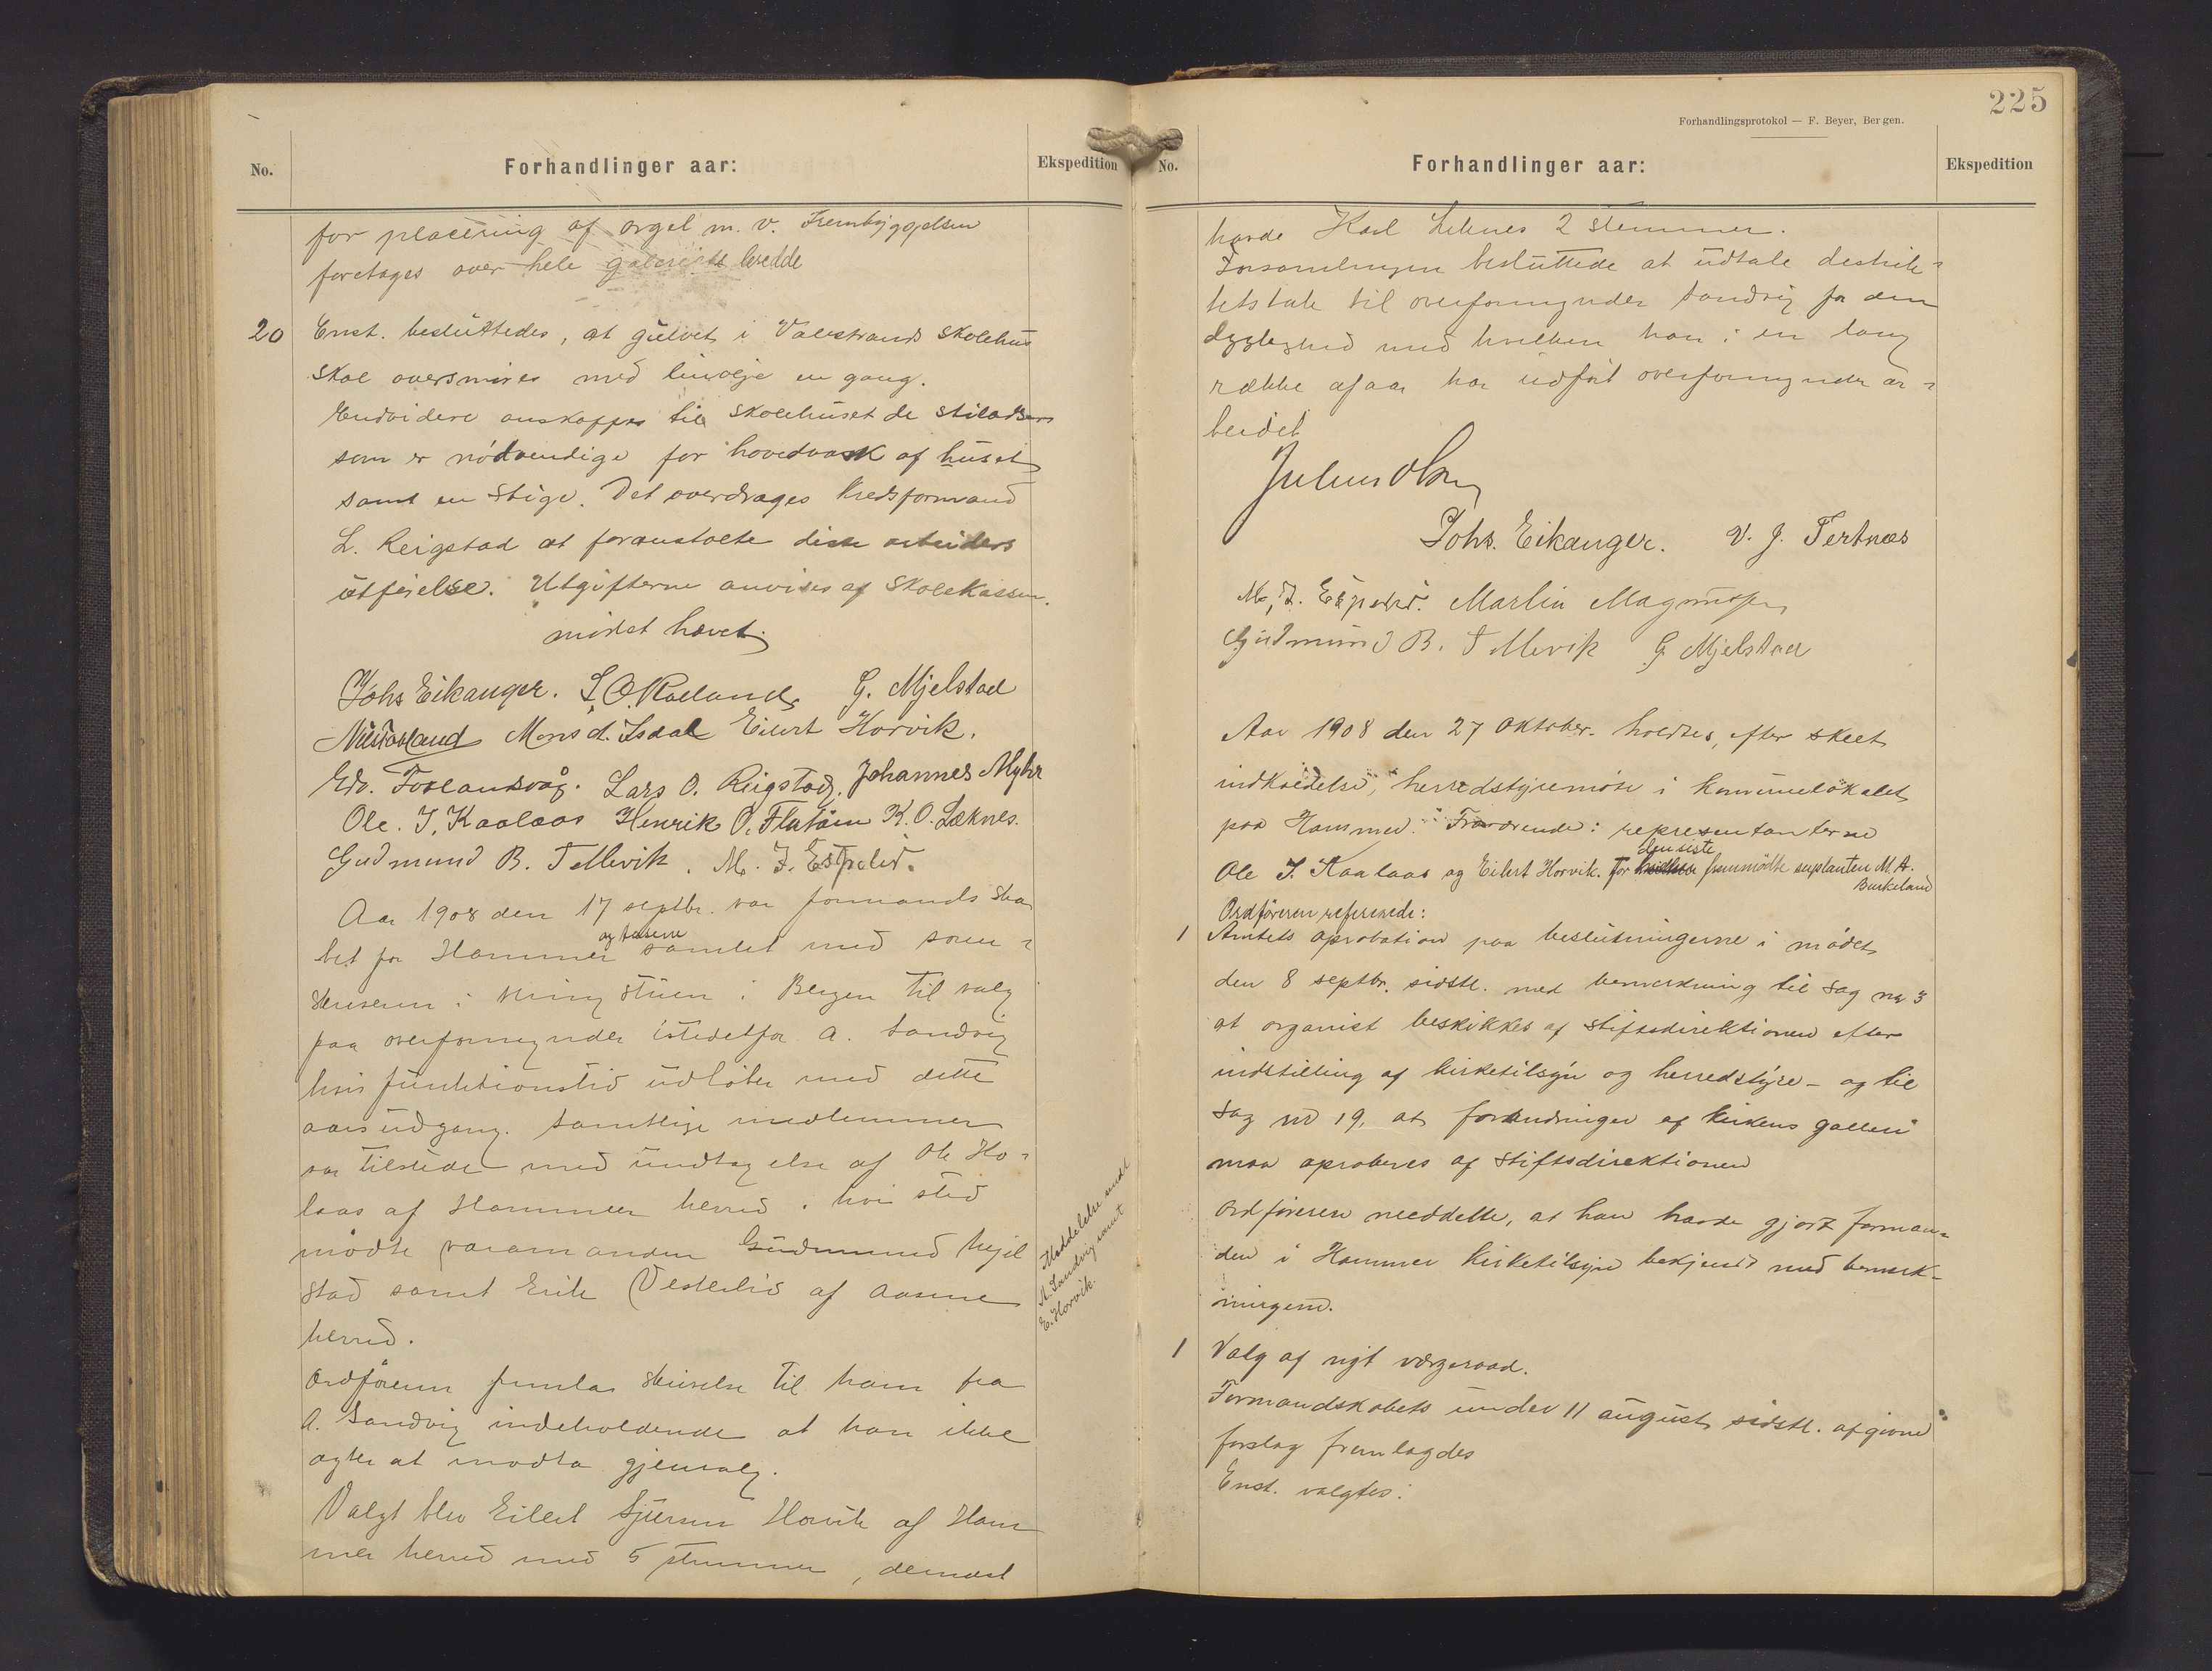 No.
Forhandlinger aar:
Ekspedition
for placering af orgel m. v. Frembyggelsen
foretages over hele galeriets bredde
20 Enst. besluttedes, at gulvet i Valestrand skolehus
skal oversmøres med linolje en gang.
Endvidere anskaffes til skolehuset de stiladser
som er nødvendige for hovedvask af huset
samt en stige. Det overdrages kredsformand
L. Reigstad at foranstalte disse arbeiders
utførelse. Utgifterne anvises af skolekassen.
mødet hævet.
Johs Eikanger. L. O. Roeland G. Mjelstad
Nils Tosland Mons A. Isdal Eilert Horvik.
Edv. Foslandsvåg. Lars O. Reigstad. Johannes Myhr
Ole. J. Kaalaas Henrik O. Flatøen K. O. Leknes.
Gudmund B. Tellevik. M. J. Espelid.
Aar 1908 den 17 septbr. var formandsska-
bet for Hammer og Aasene samlet med soren-
skriveren i thingstuen i Bergen til valg
paa overformynder istedetfor A. Sandvig
hvis funktionstid udløber med dette
aars udgang. Samtlige medlemmer
var tilstede med undtagelse af Ole Ko-
laas af Hammer herred i hvis sted
mødte varamanden Gudmund Mjel
stad samt Erik Vesterlid af Aasene
herred.
Ordføreren fremla skrivelse til ham fra
A. Sandvig indeholdende at han ikke
agter at modta gjenvalg.
Valgt blev Eilert Sjursen Horvik af Ham
mer herred med 5 stemmer, dernæst
Meddelelse sendt
A. Sandvig samt
E. Horvik.
225
Forhandlingsprotokol — F. Beyer, Bergen.
No.
Forhandlinger aar:
Ekspedition
havde Karl Leknes 2 stemmer.
Forsamlingen besluttede at udtale distrik-
tets tak til overformynder Sandvig for den
dygtighed med hvilken han i en lang
række af aar har udført overformynder ar-
beidet
Julius Olsen
Johs. Eikanger. V. J. Tertnæs
M. J. Espelid. Martin Magnussen
Gudmund B. Tellevik G Mjelstad
Aar 1908 den 27 oktober. holdtes, efter skeet
indkaldelse, herredstyremøte i kommunelokalet
paa Hammer. Fraværende: representanterne
Ole J. Kaalaas og Eilert Horvik. for den siste fremmødte suplanten M. A.
Burkeland
Ordføreren refererede:
1 Amtets aprobation paa beslutningerne i mødet
den 8 septbr. sidstl. med bemerkning til sag no 3
at organist beskikkes af stiftsdirektionen efter
indstilling af kirketilsyn og herredstyre – og til
sag no 19, at forandringer af kirkens galleri
maa aproberes af stiftsdirektionen
Ordføreren meddelte, at han havde gjort forman-
den i Hammer kirketilsyn bekjendt med bemerk-
ningene.
1 Valg af nyt værgeraad.
Formandskabets under 11 august sidstl. afgivne
forslag fremlagdes
Enst. valgtes: